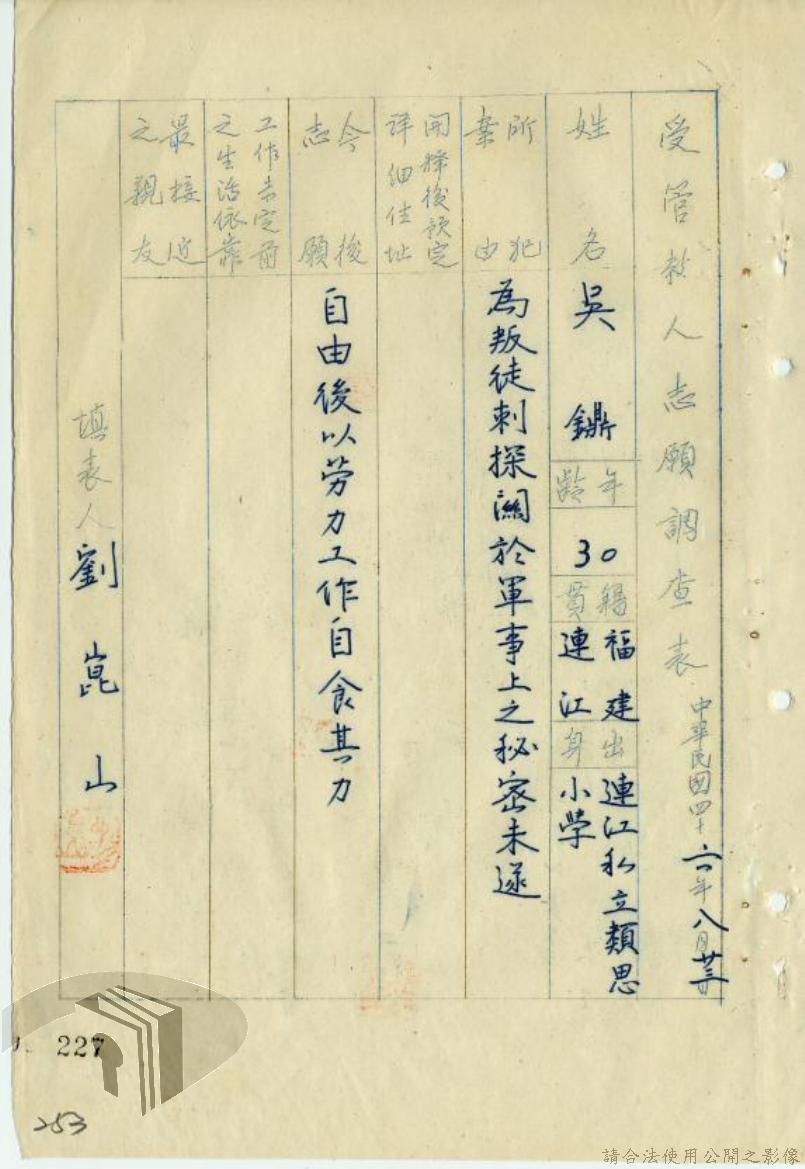 受管教人志願調查表
中華民國四十六年八月廿三日
姓名
吳鐤
年齡
30
籍貫
福建
連江
出身
連江私立類思
小學
所犯
案由
為叛徒刺探關於軍事上之秘密未遂
開釋後預定
詳細住址
今後
志願
自由後以劳力工作自食其力
工作未定前
之生活依靠
最接近
之親友
填表人 劉崑山
227
253
請合法使用公開之影像